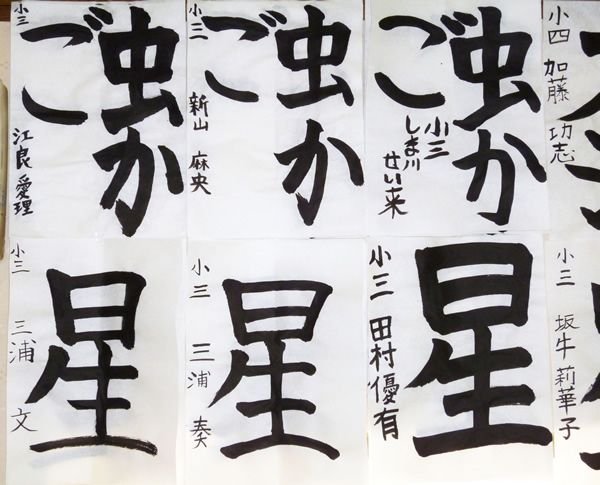 虫か
ご
小三
江良 愛理
虫か
ご
小三
新山 麻央
虫か
ご
小三
しま川
せい来
小四 加藤 功志
星
小三 三浦 文
星
小三 三浦 奏
星
小三 田村優有
小三 坂牛 莉華子